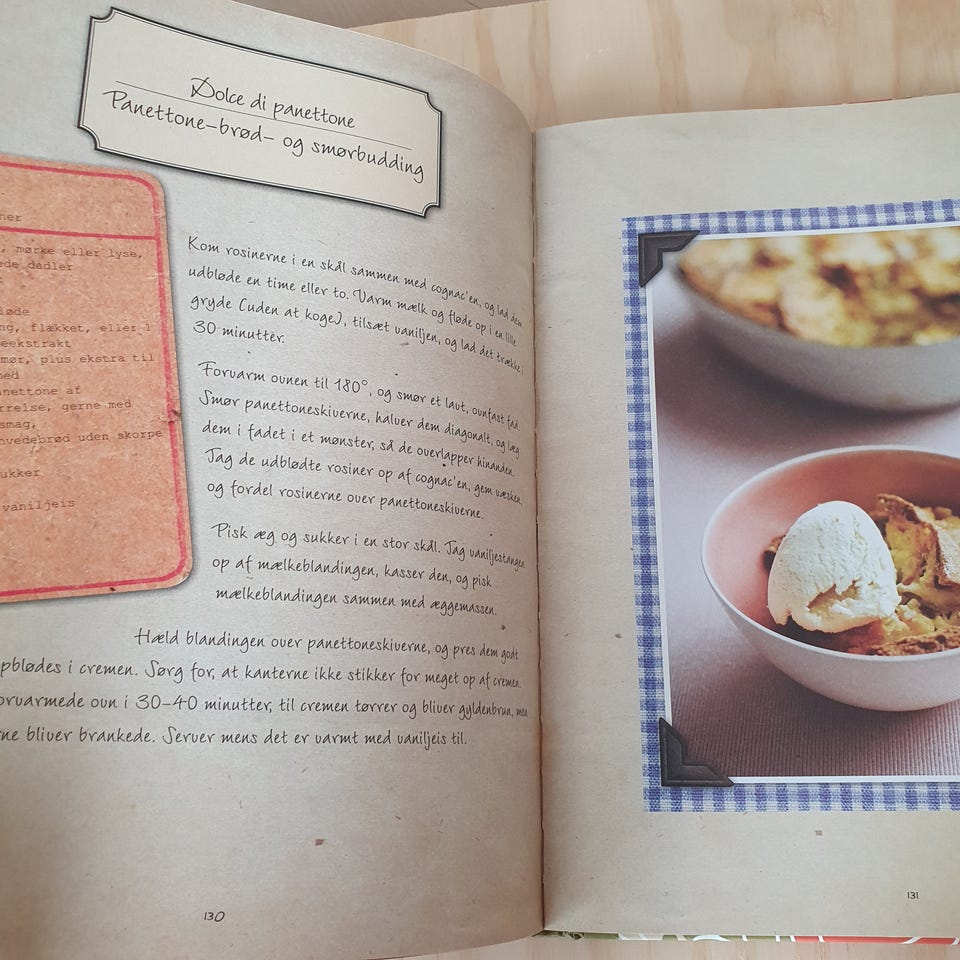 Dolce di panettone
Panettone-brød- og smørbudding
ner
, mørke eller lyse,
ede dadler
øde
ng, flækket, eller 1
eekstrakt
mør, plus ekstra til
ed
anettone af
rrelse, gerne med
smag,
nvedebrød uden skorpe
ukker
vaniljeis
Kom rosinerne i en skål sammen med cognac'en, og lad dem
udbløde en time eller to. Varm mælk og fløde op i en lille
gryde (uden at koge), tilsæt vaniljen, og lad det trække i
30 minutter.
Forvarm ovnen til 180°, og smør et lavt, ovnfast fad.
Smør panettoneskiverne, halver dem diagonalt, og læg
dem i fadet i et mønster, så de overlapper hinanden.
Tag de udblødte rosiner op af cognac'en, gem væsken,
og fordel rosinerne over panettoneskiverne.
Pisk æg og sukker i en stor skål. Tag vaniljestangen
op af mælkeblandingen, kasser den, og pisk
mælkeblandingen sammen med æggemassen.
Hæld blandingen over panettoneskiverne, og pres dem godt
pblødes i cremen. Sørg for, at kanterne ikke stikker for meget op af cremen.
orvarmede ovn i 30-40 minutter, til cremen tørrer og bliver gyldenbrun, men
rne bliver brankede. Server mens det er varmt med vaniljeis til.
130
131